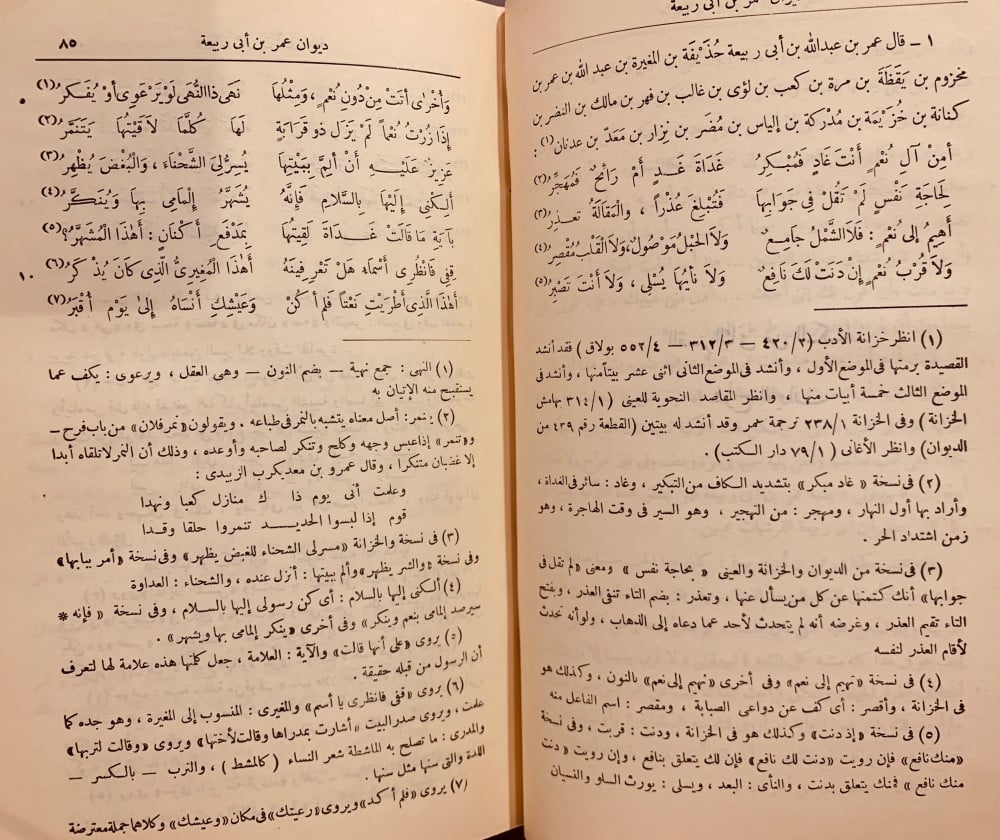 ديوان عمر بن أبى ربيعة
١ - قال عمر بن عبدالله بن أبى ربيعة حُذَيْفَة بن المغيرة بن عبد الله بن عمر بن
مخزوم بن يَقَظَة بن مرة بن كعب بن لؤى بن غالب بن فهر بن مالك بن النضر بن
كنانة بن خُزَيْمة بن مُدْركة بن إلياس بن مُضَر بن نِزَار بن مَعَدّ بن عدنان (١) :
أَمِنْ آلِ نُعْمٍ أَنْتَ غَادٍ فَمُبْكِرُ غَدَاةَ غَدٍ أَمْ رَائِحٌ فَمُهَجِّرُ (٢)
لِحَاجَةِ نَفْسٍ لَمْ تَقُلْ فِى جَوَابِهَا فَتُبْلِغَ عُذْراً ، والْمَقَالَةُ تعذر (٣)
أَهِيمُ إلى نُعْمٍ : فَلاَ الشَّمْلُ جَامِعٌ وَلاَ الْحَبْلُ مَوْصُولٌ ، وَلاَ الْقَلْبُ مُقْصِرُ (٤)
وَلاَ قُرْبُ نُعْمٍ إِنْ دَنَتْ لَكَ نَافِعٌ وَلاَ نَأْيُهَا يُسْلِى ، وَلاَ أَنْتَ تَصْبِرُ (٥)
(١) انظر خزانة الأدب (٢/٤٢٠ — ٣/٣١٢ — ٤/٥٥٢ بولاق) فقد أنشد
القصيدة برمتها فى الموضع الأول ، وأنشد فى الموضع الثانى اثنى عشر بيتا منها ، وأنشد فى
الموضع الثالث خمسة أبيات منها ، وانظر المقاصد النحوية للعينى (١/٣١٤ بهامش
الخزانة) وفى الخزانة ١/٢٣٨ ترجمة سمر وقد أنشد له بيتين (القطعة رقم ٤٣٩ من
الديوان) وانظر الأغانى (١/٧٩ دار الكتب) .
(٢) فى نسخة « غاد مبكر» بتشديد الكاف من التبكير ، وغاد : سائر فى الغداة ،
وأراد بها أول النهار ، ومهجر : من التهجير ، وهو السير فى وقت الهاجرة ، وهو
زمن اشتداد الحر .
(٣) فى نسخة من الديوان والخزانة والعينى « بحاجة نفس » ومعنى «لم تقل فى
جوابها» أنك كتمتها عن كل من يسأل عنها ، وتعذر : بضم التاء تنفى العذر ، وبفتح
التاء تقيم العذر ، وغرضه أنه لم يتحدث لأحد عما دعاه إلى الذهاب ، ولو أنه تحدث
لأقام العذر لنفسه
(٤) فى نسخة «تهيم إلى نعم» وفى أخرى «نهيم إلى نعم» بالنون ، وكذلك هو
فى الخزانة ، وأقصر : أى كف عن دواعى الصبابة ، ومقصر : اسم الفاعل منه
(٥) فى نسخة «إذ دنت» وكذلك هو فى الخزانة ، ودنت : قربت ، وفى نسخة
«منك نافع» فإن رويت «دنت لك نافع» فإن لك يتعلق بنافع ، وإن رويت «دنت
منك نافع» فمنك يتعلق بدنت ، والنأى : البعد ، ويسلى : يورث السلو والنسيان
ديوان عمر بن أبى ربيعة ٨٥
وَأُخْرَى أَتَتْ مِنْ دُونِ نُعْمٍ ، وَمِثْلُهَا نَهَى ذَا النُّهَى لَوْ يَرْعَوِى أَوْ يُفَكِّرُ (١)
إِذَا زُرْتُ نُعْماً لَمْ يَزَلْ ذُو قَرَابَةٍ لَهَا كُلَّمَا لاَقَيْتُهَا يَتَنَمَّرُ (٢)
عَزِيزٌ عَلَيْهِ أَنْ أُلِمَّ بِبَيْتِهَا يُسِرُّ لِىَ الشَّحْنَاءَ ، وَالْبُغْضَ يُظْهِرُ (٣)
أَلِكْنِى إِلَيْهَا بِالسَّلاَمِ فَإِنَّهُ يُشَهَّرُ إِلْمَامِى بِهَا وَيُنَكَّرُ (٤)
بآيَةِ مَا قَالَتْ غَدَاةَ لَقِيتُهَا بِمَدْفَعِ أَكْنَانٍ : أَهٰذَا الْمُشَهَّرُ؟ (٥)
١٠ قِفِى فَانْظُرِى أَسْمَاءُ هَلْ تَعْرِفِينَهُ أَهٰذَا الْمُغِيرِىُّ الَّذِى كَانَ يُذْكَرُ (٦)
أَهٰذَا الَّذِى أَطْرَيْتِ نَعْتاً فَلَمْ أَكُنْ وَعَيْشِكِ أَنْسَاهُ إِلَى يَوْمِ أُقْبَرُ (٧)
(١) النهى : جمع نهية — بضم النون — وهى العقل ، ويرعوى : يكف عما
يستقبح منه الإتيان به
(٢) يتنمر : أصل معناه يتشبه بالنمر فى طباعه . ويقولون «نمر فلان» من باب فرح —
و«تنمر» إذا عبس وجهه وكلح وتنكر لصاحبه وأوعده ، وذلك أن النمر لا تلقاه أبدا
إلا غضبان متنكرا ، وقال عمرو بن معد يكرب الزبيدى :
وعلمت أنى يوم ذا ك منازل كعبا ونهدا
قوم إذا لبسوا الحديــد تنمروا حلقا وقدا
(٣) فى نسخة والخزانة «مسر لى الشحناء للغبض يظهر» وفى نسخة «أمر ببابها»
وفى نسخة «والشر يظهر» وألم ببيتها : أنزل عنده ، والشحناء : العداوة
(٤) ألكنى إليها بالسلام : أى كن رسولى إليها بالسلام ، وفى نسخة « فإنه *
سيرصد إلمامى بنعم وينكر» وفى أخرى «ينكر إلمامى بها ويشهر» .
(٥) يروى «على أنها قالت» والآية : العلامة ، جعل كلمتها هذه علامة لها لتعرف
أن الرسول من قبله حقيقة .
(٦) يروى «قفى فانظرى يا أسم» والمغيرى : المنسوب إلى المغيرة ، وهو جده كما
علمت ، ويروى صدر البيت «أشارت بمدراها وقالت لأختها» ويروى «وقالت لتربها»
والمدرى : ما تصلح به الماشطة شعر النساء (كالمشط) ، والترب — بالكسر —
اللدة والتى سنها مثل سنها .
(٧) يروى «فلم أكد» ويروى «رعيتك» فى مكان «وعيشك» وكلاهما جملة معترضة